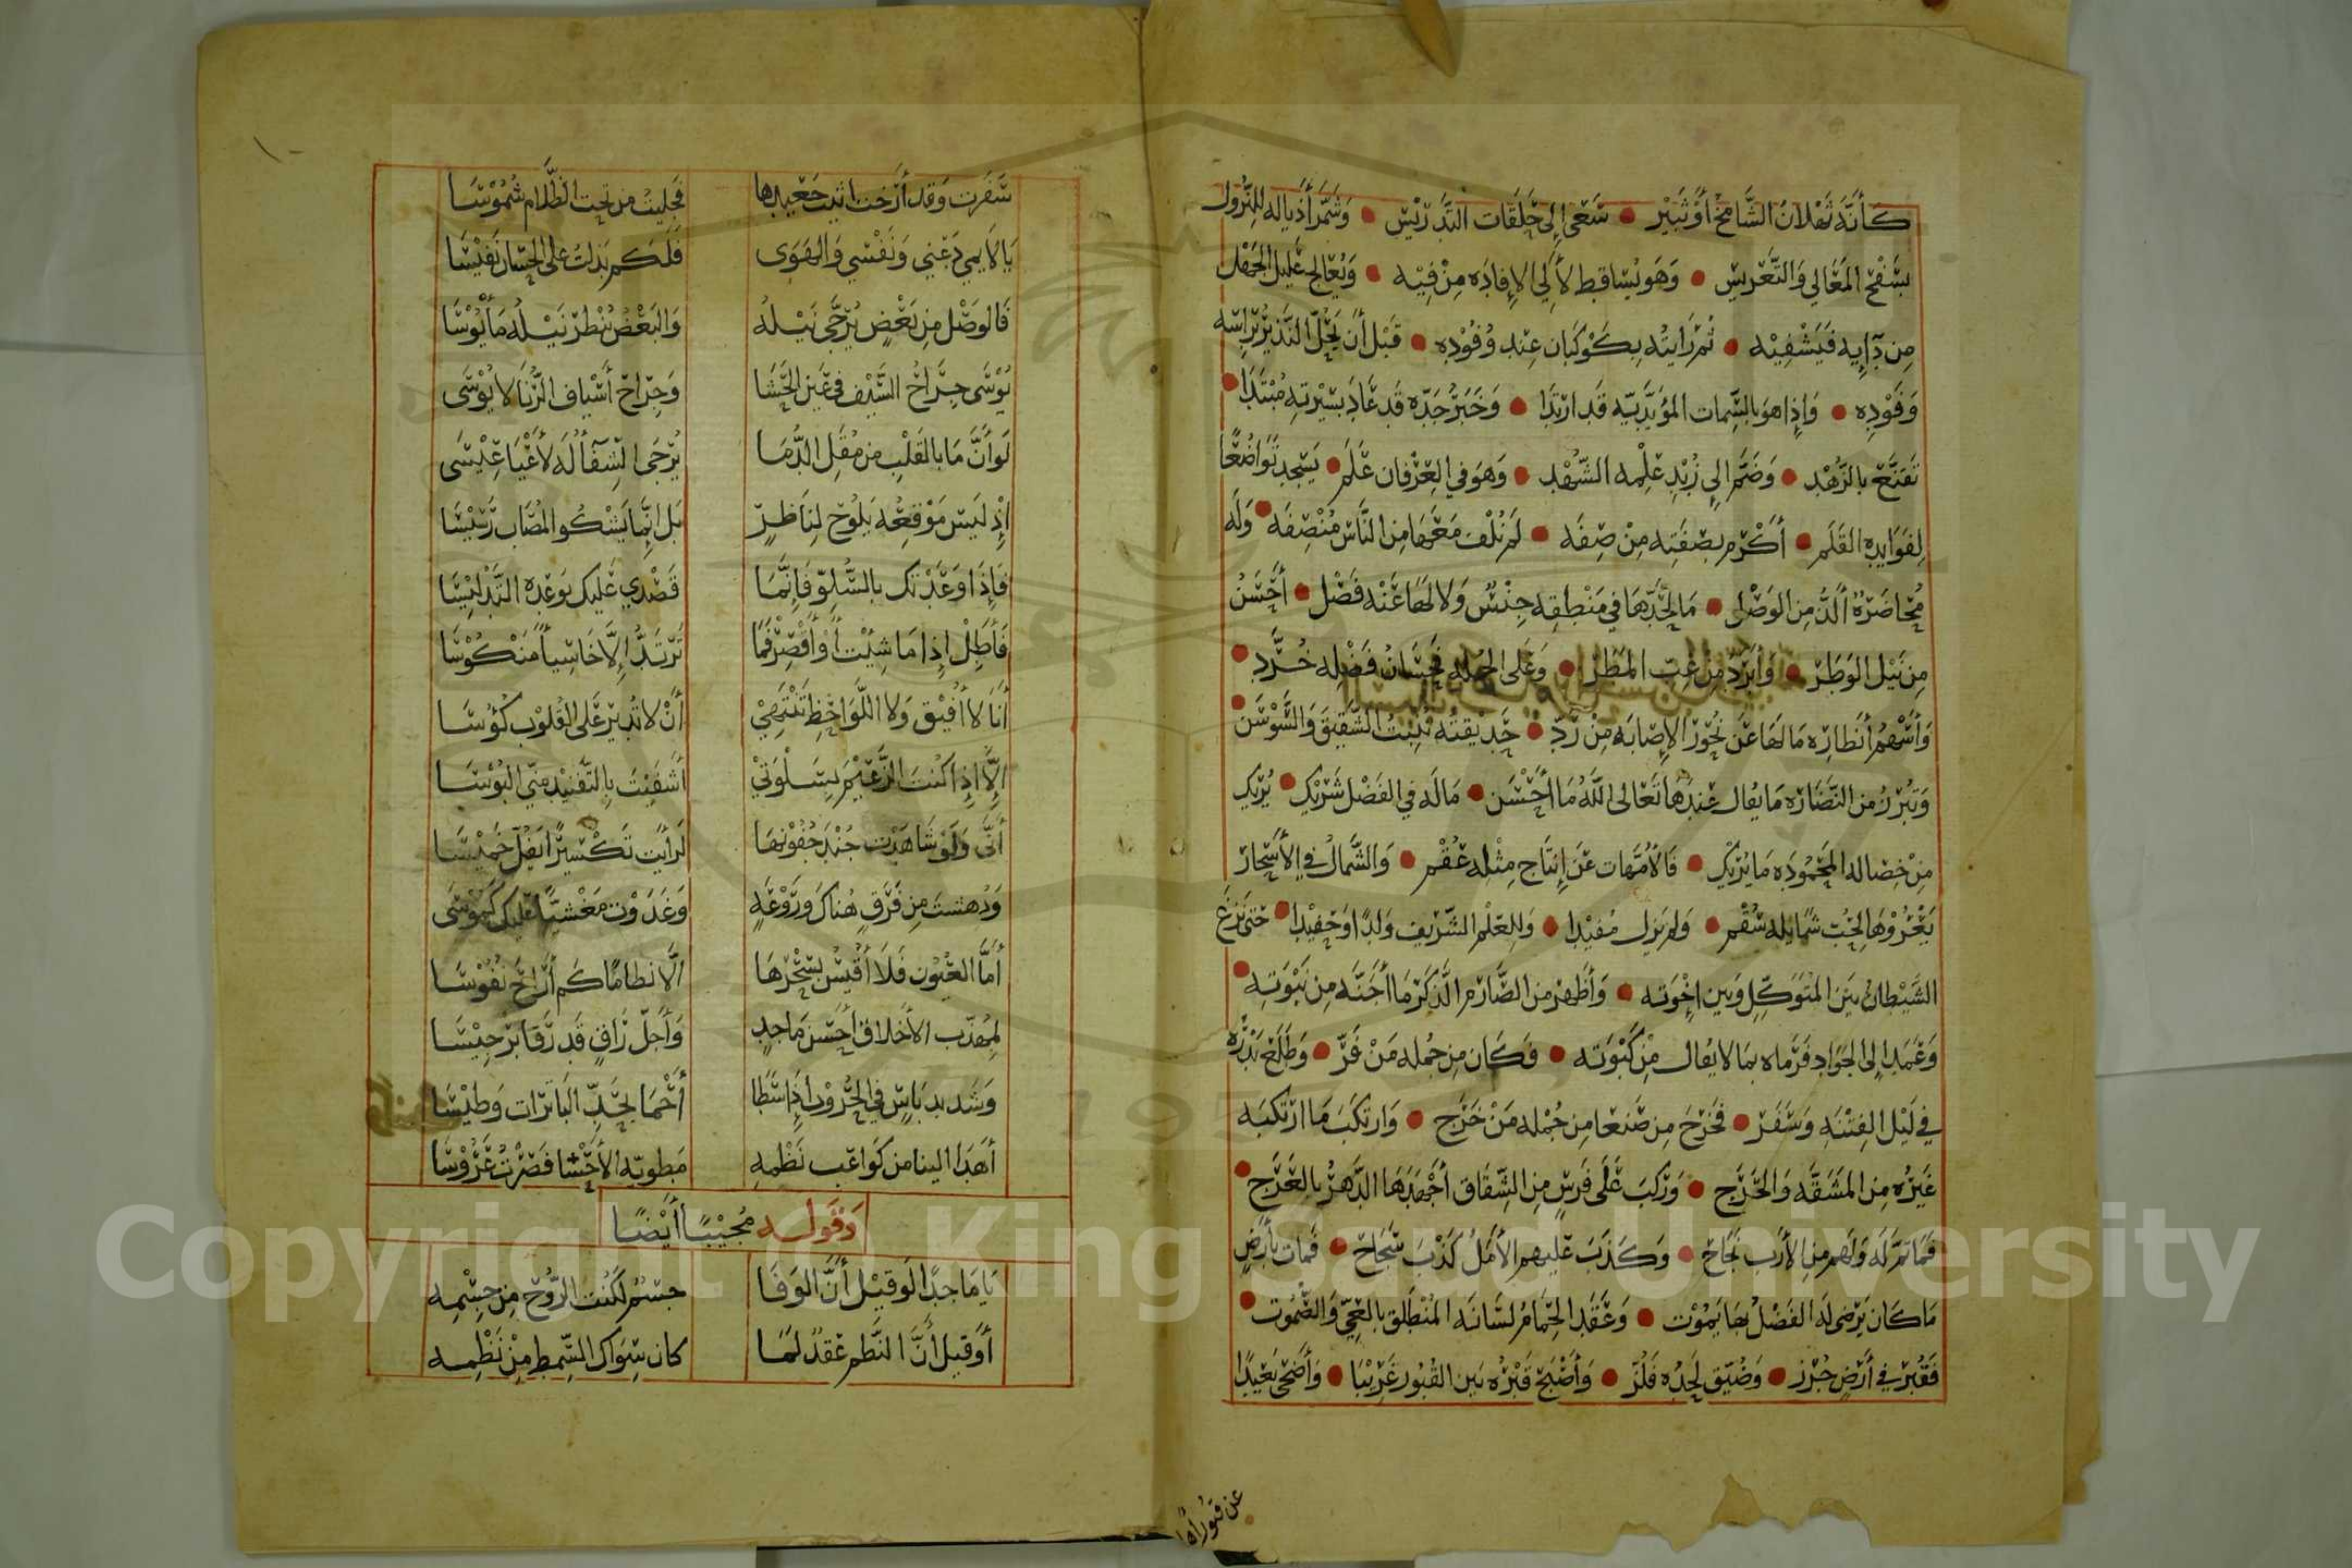 كأنه ثهلان الشامخ أو ثبير • سعى إلى حلقات التدريس • وشمر أذياله للنزول
بسفح المعالي والتعريس • وهو يساقط لآلي الإفاده من فيه • ويعالج عليل الجهل
من دآيه فيشفيه • ثم رايته بكوكبان عند وفوده • قبل أن يحل النذير براسه
وفوده • وإذا هو بالسمات المؤيديه قد ارتدا • وخبر جده قد عاد بسيرته مبتدا •
تقنع بالزهد • وضم الى زبد علمه الشهد • وهو في العرفان علم • يسجد تواضعًا
لفوايده القلم • أكرم بصفته من صفه • لم تلف معها من الناس منصفه • وله
محاضرة ألذ من الوصل • ما لحدها في منطقه جنس ولا لها عنه فصل • أحسن
من نيل الوطر • وأبرد من غب المطر • وعلى الجمله فحسان فضله خرد •
وأسهم أنظاره ما لها عن نحور الإصابه من رد • حديقته تنبت الشقيق والسوسن •
وتبرز من النضاره ما يقال عندها تعالى الله ما أحسن • ماله في الفضل شريك • يريك
من خصاله المحموده ما يريك • فالأمهات عن إنتاج مثله عقم • والشمال في الأسحار
يعروها لحب شمايله سقم • ولم يزل مفيدا • وللعلم الشريف ولدًا وحفيدا • حتى نزغ
الشيطان بين المتوكل وبين إخوته • وأظهر من الصارم الذكر ما أجنه من نبوته •
وعمد إلى الجواد فرماه بما لا يقال من كبوته • فكان من جمله من فر • وطلع بدره
في ليل الفتنه وسفر • فخرج من صنعا من جمله من خرج • وارتكب ما ارتكبه
غيره من المشقه والحرج • وركب على فرس من الشقاق أجهدها الدهر بالعرج •
فما تم له ولهم من الأرب نجاح • وكذب عليهم الأمل كذب سجاح • فمات بأرض
ما كان يرضى له الفضل بها يموت • وعقد الحمام لسانه المنطلق بالعي والصموت •
فقبر في أرض جرز • وضيق لحده فلز • وأصبح قبره بين القبور غريبا • وأضحى بعيدًا
سفرت وقد أرخت اثيث جعيدها فجليت من تحت الظلام شموسا
يا لايمي دعني ونفسي والهوى فلكم بذلت على الحسان نفيسا
فالوصل من بعض يرجى نيله والبعض ينظر نيله مأيوسا
يوسى جراح السيف في عين الحشا وجراح أسياف الرنا لا يوسى
لو أن ما بالقلب من مقل الدما يرجى الشفأ له لأعيا عيسى
إذ ليس موقعه يلوح لناظر بل إنما يشكو المصاب رسيسا
فإذا وعدتك بالسلو فإنما قصدي عليك بوعده التدليسا
فأطل إذا ما شئت أو أقصر فما ترتد إلا خاسيأ منكوسا
أنا لا أفيق ولا اللواحظ تنتهي أن لا تدير على القلوب كؤسا
إلا إذا كنت الزعيم بسلوتي أشفيت بالتفنيد مني البوسا
أنى ولو شاهدت جند جفونها لرأيت تكسيرا يفل خميسا
ودهشت من فرق هناك وروعة وغدوت مغشيا عليك كموسى
أما العيون فلا أقيس بسحرها الا نظاما كم أراح نفوسا
لمهذب الأخلاق أحسن ماجد وأجل راق قد رقا برجيسا
وشديد باس في الحروب إذا سطا أحما بحد الباترات وطيسا
أهدا الينا من كواعب نظمه مطويه الأحشا فصرت عروسا
وقوله مجيبا أيضا
يا ماجدًا لو قيل أن الوفا جسم لكنت الروح من جسمه
أو قيل أن النظم عقد لما كان سواك السمط من نظمه